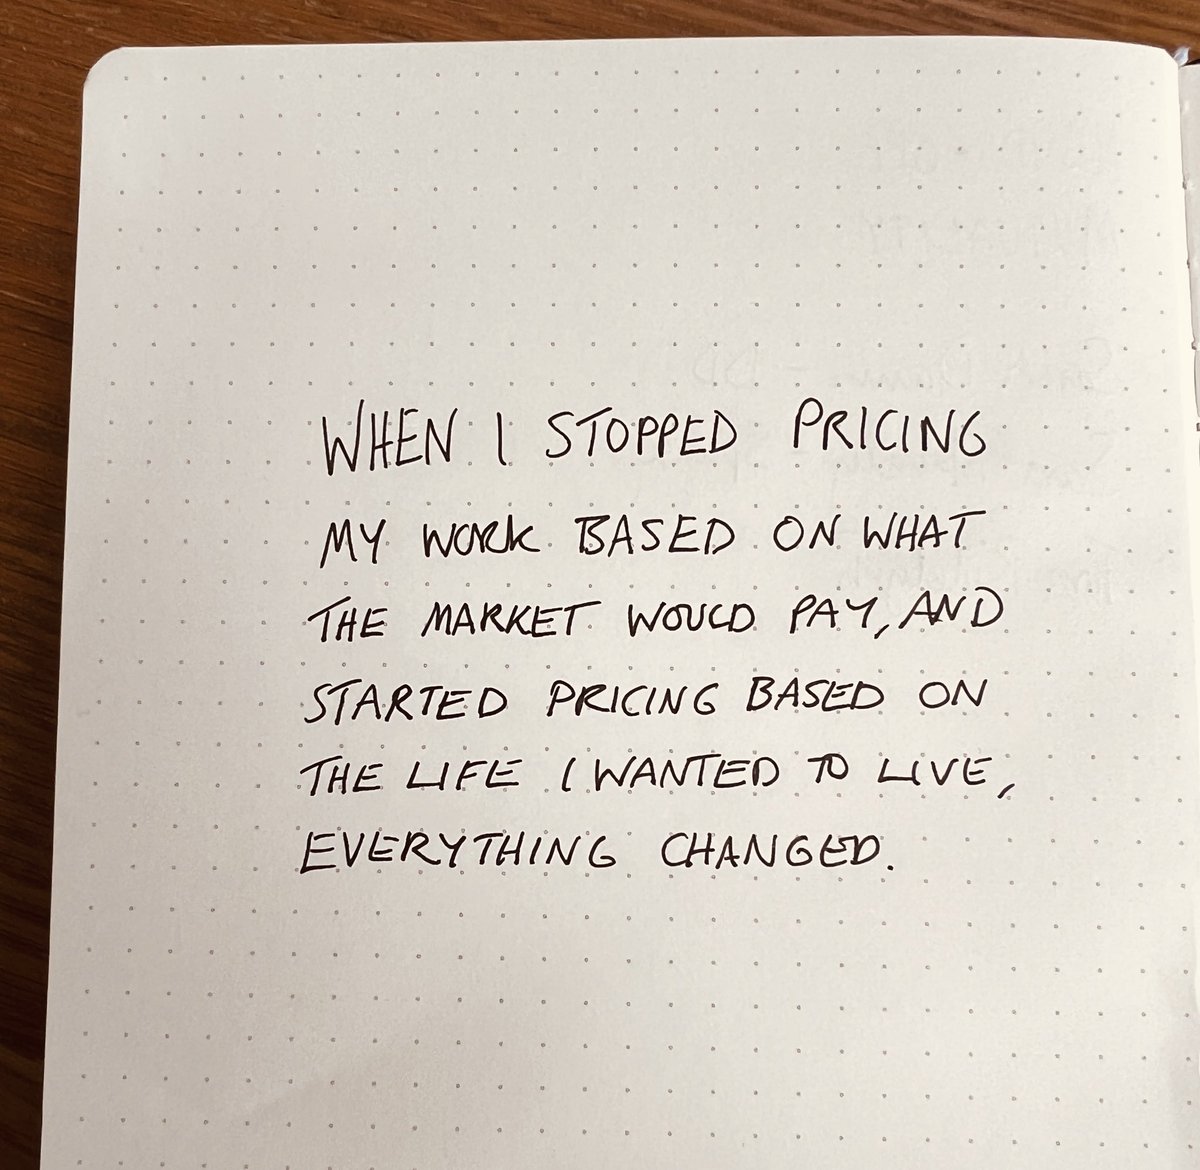 WHEN I STOPPED PRICING
MY WORK BASED ON WHAT
THE MARKET WOULD PAY, AND
STARTED PRICING BASED ON
THE LIFE I WANTED TO LIVE,
EVERYTHING CHANGED.